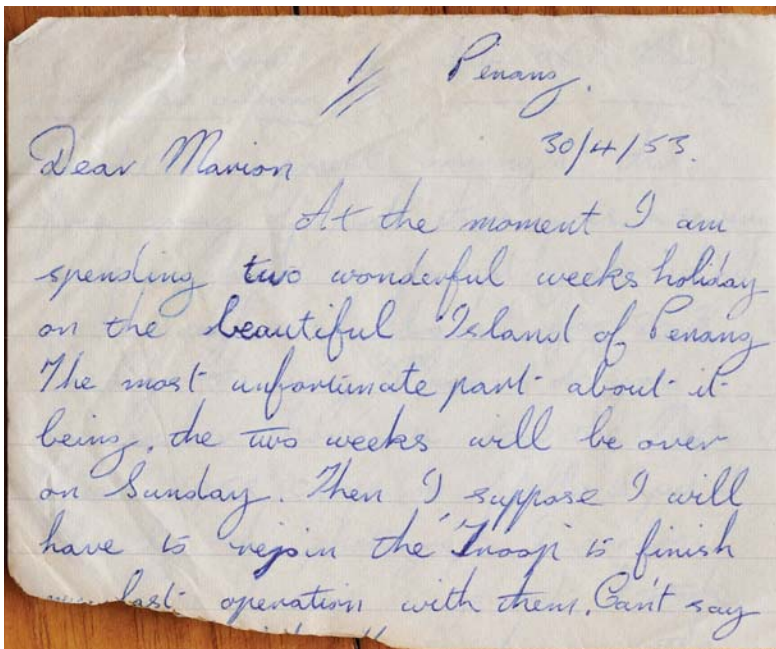 1// Penang.
30/4/53.
Dear Marion
At the moment I am
spending two wonderful weeks holiday
on the beautiful Island of Penang
The most unfortunate part about it
being, the two weeks will be over
on Sunday. Then I suppose I will
have to rejoin the Troop to finish
my last operation with them. Can't say